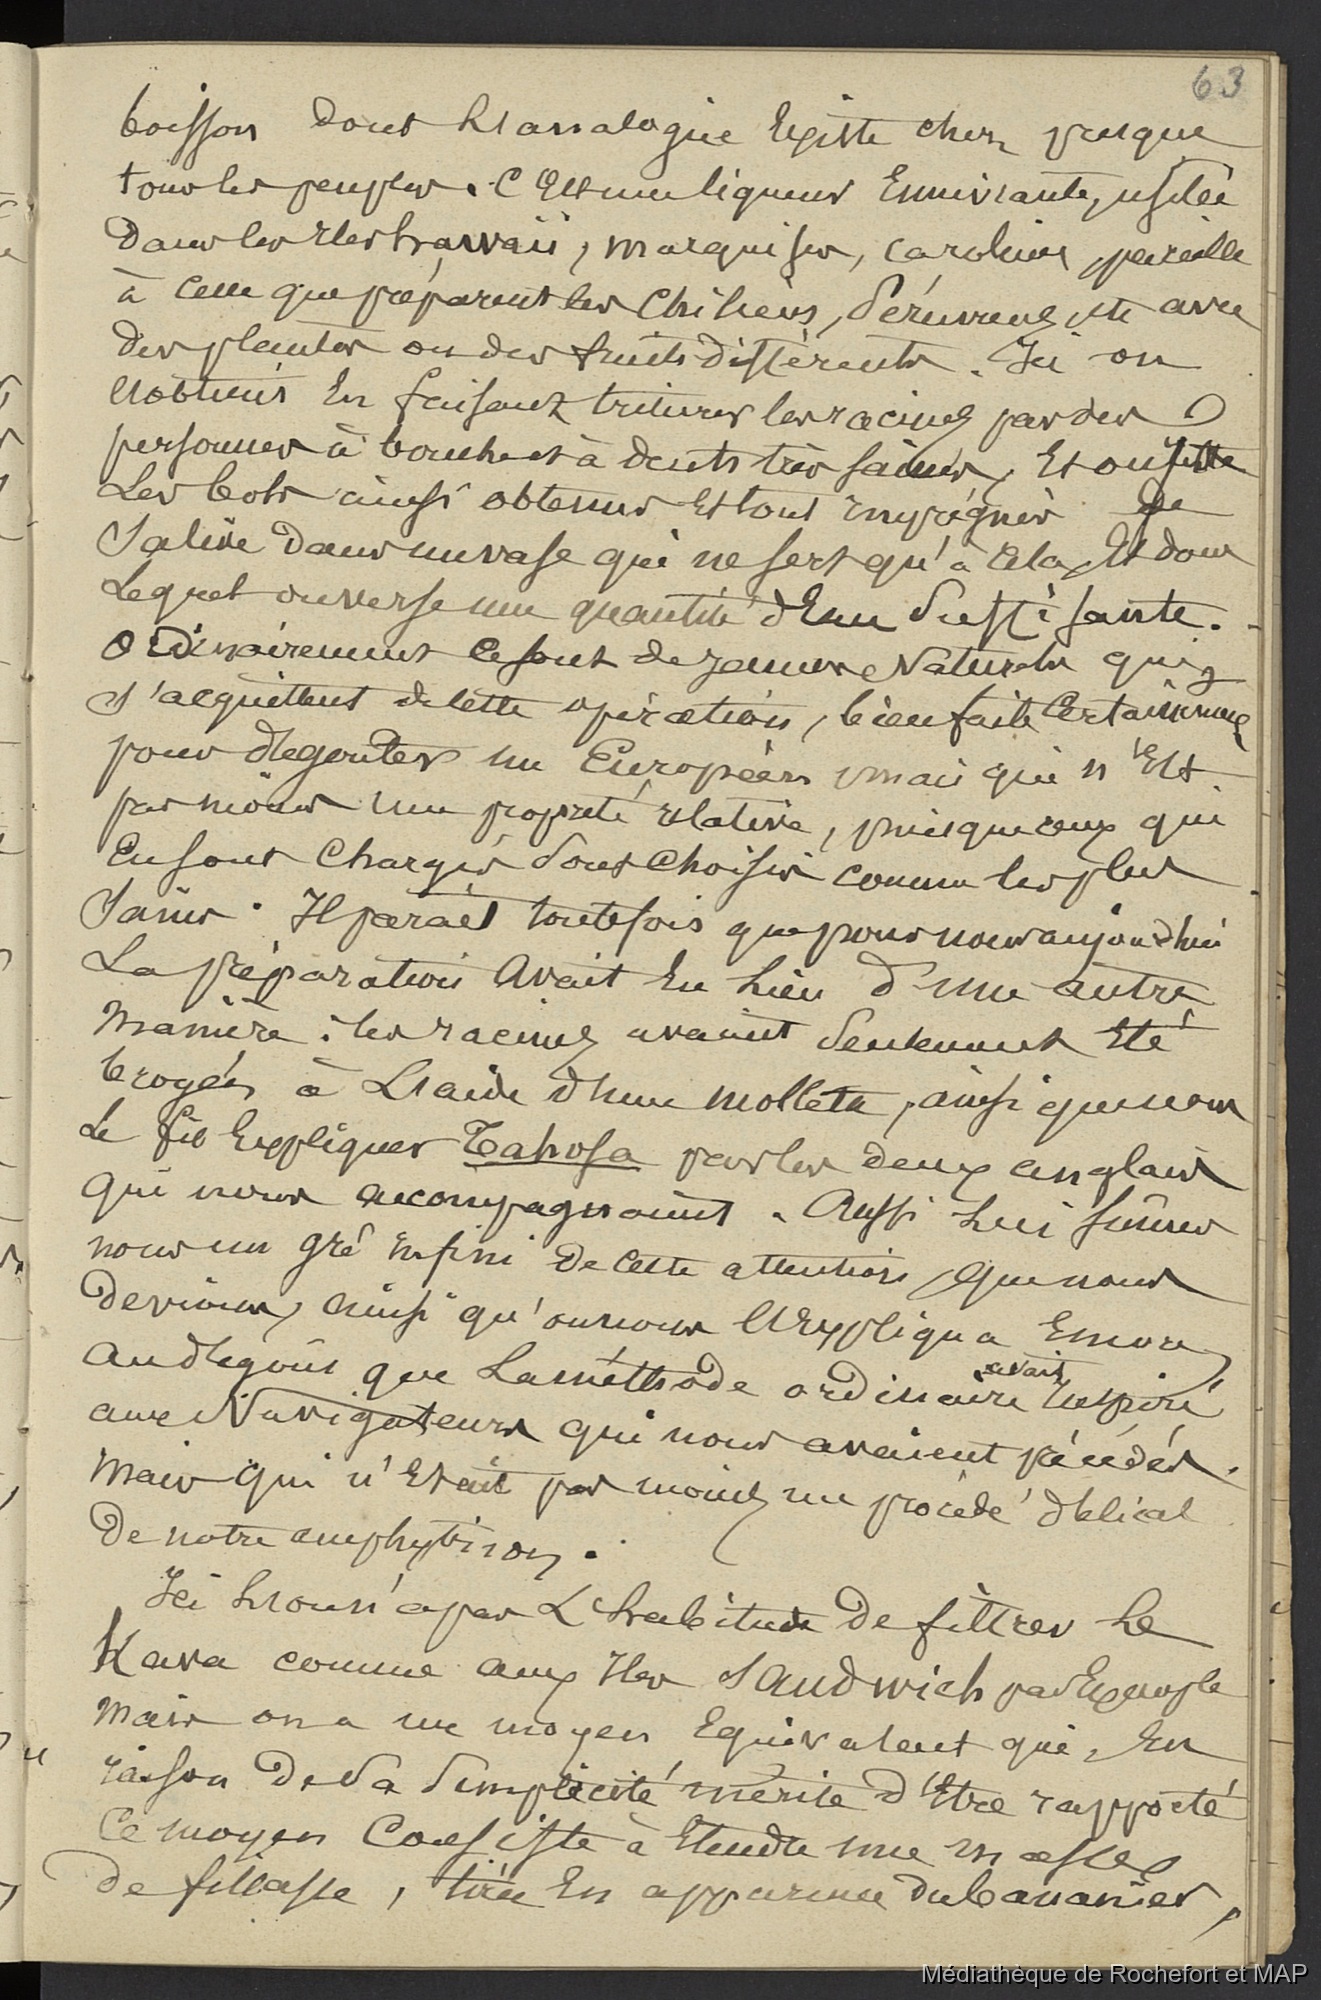 63
boisson dont l'analogue Existe chez presque
tous les peuples. C'Est une liqueur Ennivrante, usitée
Dans les Iles hawaii, marquises, carolines, pareille
à celle que préparent les Chiliens, Péruviens, etc avec
des plantes ou des fruits différents. Ici on
l'obtient En faisant triturer les racines par des
personnes à bouche et à dents très saines, Et on jette
Les bols ainsi obtenus Et tout imprégnés de
Salive Dans un vase qui ne sert qu'à cela, Et dans
Lequel on verse une quantité d'Eau Suffisante.
Ordinairement ce sont de jeunes Naturels qui
s'acquittent de cette opération, bien faite Certainement
pour dégouter un Européen, mais qui n'Est
pas moins une propreté relative, puisque ceux qui
En sont Chargés Sont Choisis comme les plus
Sains. Il parait toutefois que pour nous aujourd'hui
La préparation Avait Eu Lieu d'une autre
manière : les racines avaient Seulement Eté
broyées à L'aide d'une mollette, ainsi que nous
Le fit Expliquer Tahofa par les deux anglais
qui nous accompagnaient. Aussi Lui fûmes
nous un gré Infini de cette attention, que nous
Devions, ainsi qu'on nous l'Expliqua Encore,
Au dégoût que La méthode ordinaire avait Inspiré
aux Navigateurs qui nous avaient précédés.
Mais qui n'Etait pas moins un procédé délicat
De notre amphytrion.
Ici L'on n'a pas L'habitude De filtrer Le
Kava comme aux Iles Sandwich par Exemple
mais on a un moyen Equivalent qui, En
raison De Sa Simplicité mérite d'Etre rapporté
Ce moyen Consiste à Etendre une masse
De fillasse, tirée En apparence du bananier,
Médiathèque de Rochefort et MAP